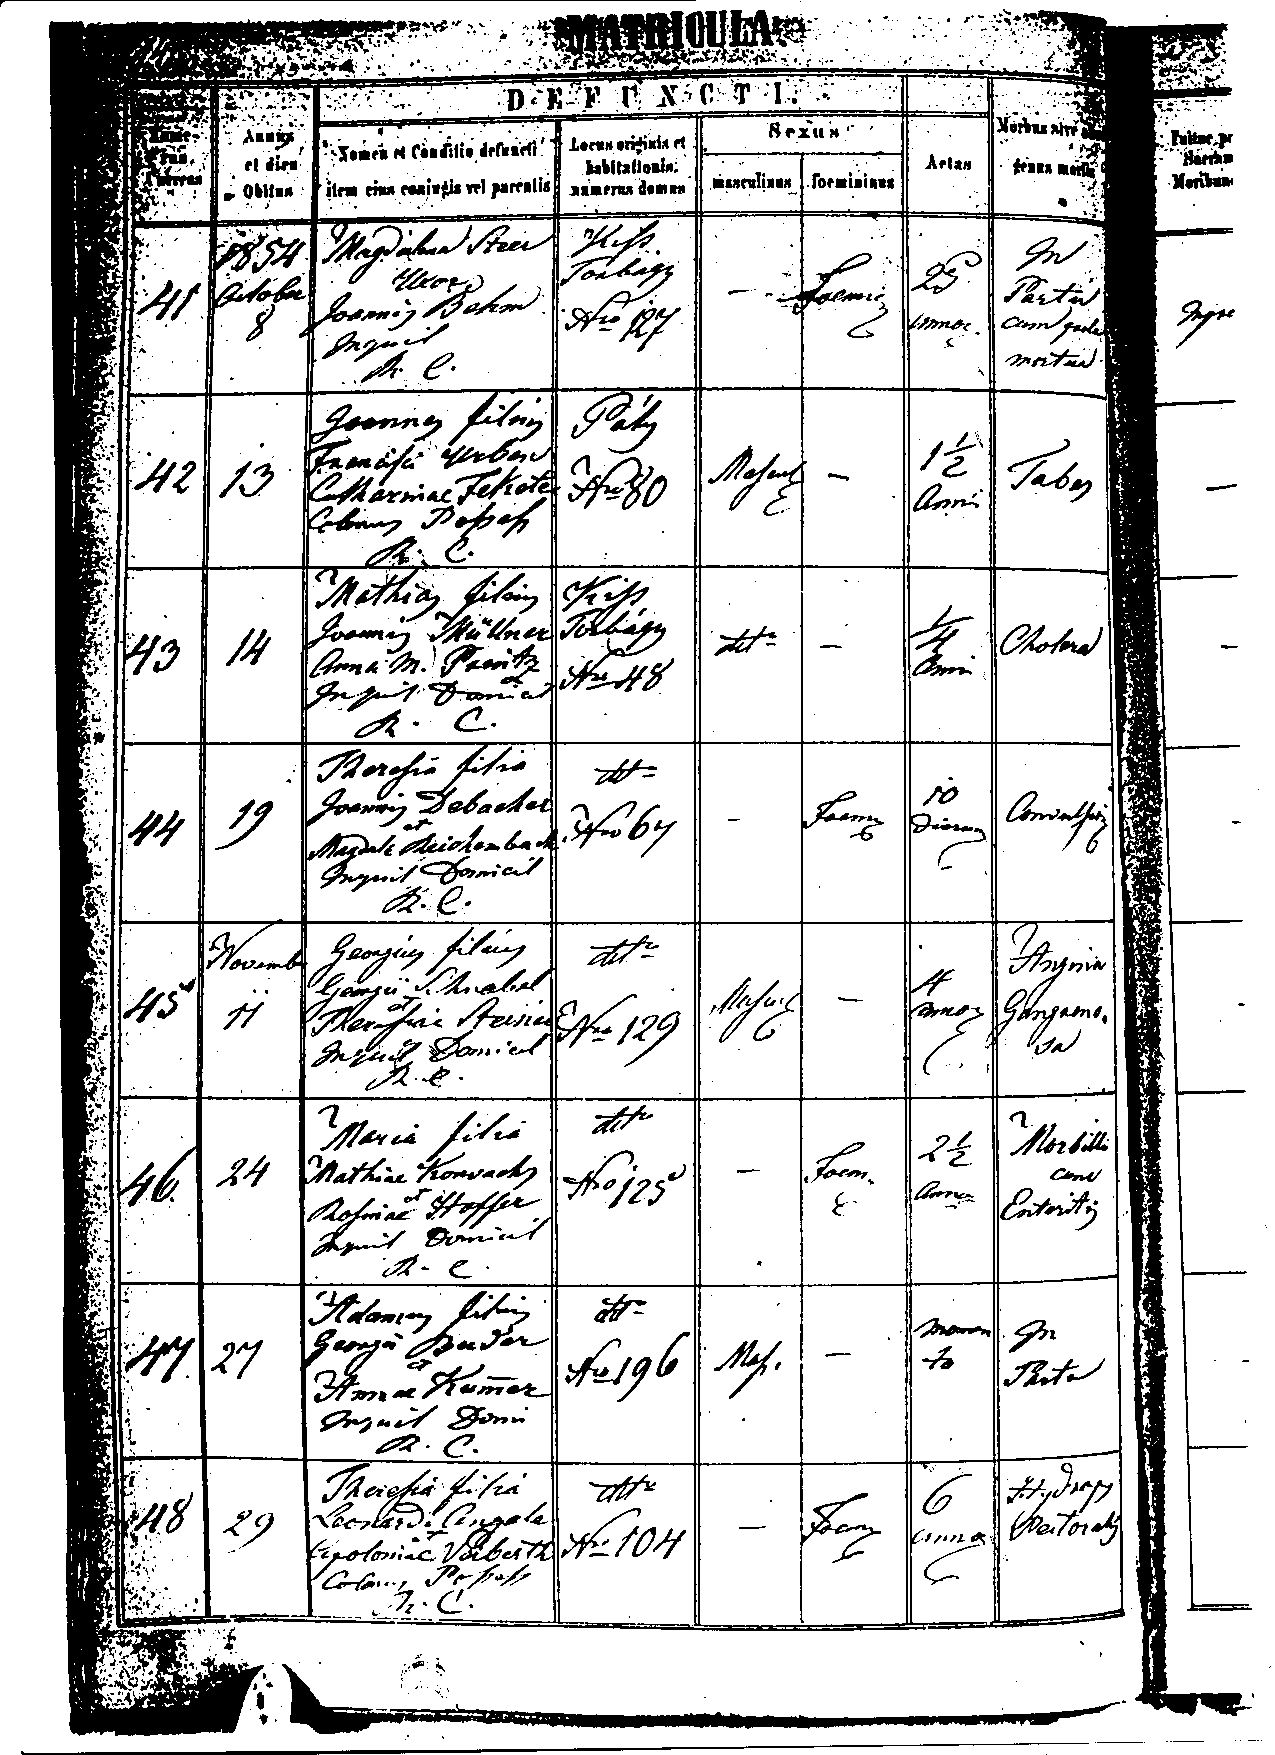 MATRICULA
DEFUNCTI.
Annus et dies Obitus
Nomen et Conditio defuncti item eius coniugis vel parentis
Locus originis et habitationis. numerus domus
Sexus
masculinus
foemininus
Aetas
Morbus sive genus mortis
41
1854 October 8
Magdalena Steer
Uxor
Joannis Bahm
Inquil
R. C.
Kiss
Torbágy
Nro 127
—
Foemin
25
annor.
In
Partu
cum prole
mortua
42
13
Joannes filius
Francisci Urban
Catharinae Fekete
Colonus Possess
R. C.
Páty
Nro 80
Mascul
—
1 1/2
Anni
Tabes
—
43
14
Mathias filius
Joannis Müllner
Anna M.
et
Inquil Domicil
R. C.
Kiss
Torbágy
Nro 48
dtto
—
1/4
Anni
Cholera
—
44
19
Theresia filia
Joannis Debacher
et
Magdale Reichembach
Inquil Domicil
R. C.
dtto
Nro 67
—
Foemin
10
dierum
Convulsiis
45
Novemb
11
Georgius filius
Georgii Schnabel
et
Theresiae
Inquil Domicil
R. C.
dtto
Nro 129
Mascul
—
4
annor
Angina
Gangraeno.
sa
46.
24
Maria filia
Mathiae Kovachs
et
Rosinae Hoffer
Inquil Domicil
R. C.
dtto
Nro 125
—
Foem.
2 1/2
Anno
Morbilli
cum
Enteritis
47
27
Adamus filius
Georgii
et
Annae Kum̄er
Inquil Domi
R. C.
dtto
Nro 196
Mas.
—
momen
to
In
Partu
48
29
Theresia filia
Leonardi Angala
et
Apoloniae
Colonus Possess
R. C.
dtto
Nro 104
—
Foem
6
annor
Hydrops
Pectoralis